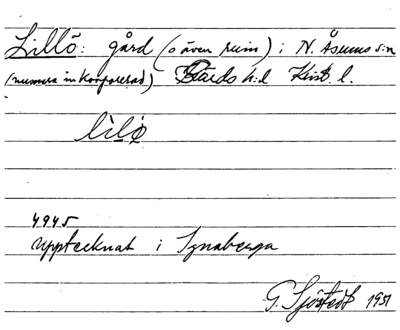 Lillö: gård (o även ruin) i N. Åsums s:n
(numera inkorporerad) Gärds h:d Krist. l.
lilø
4945
Upptecknat i Ignaberga
G. Sjöstedt 1931